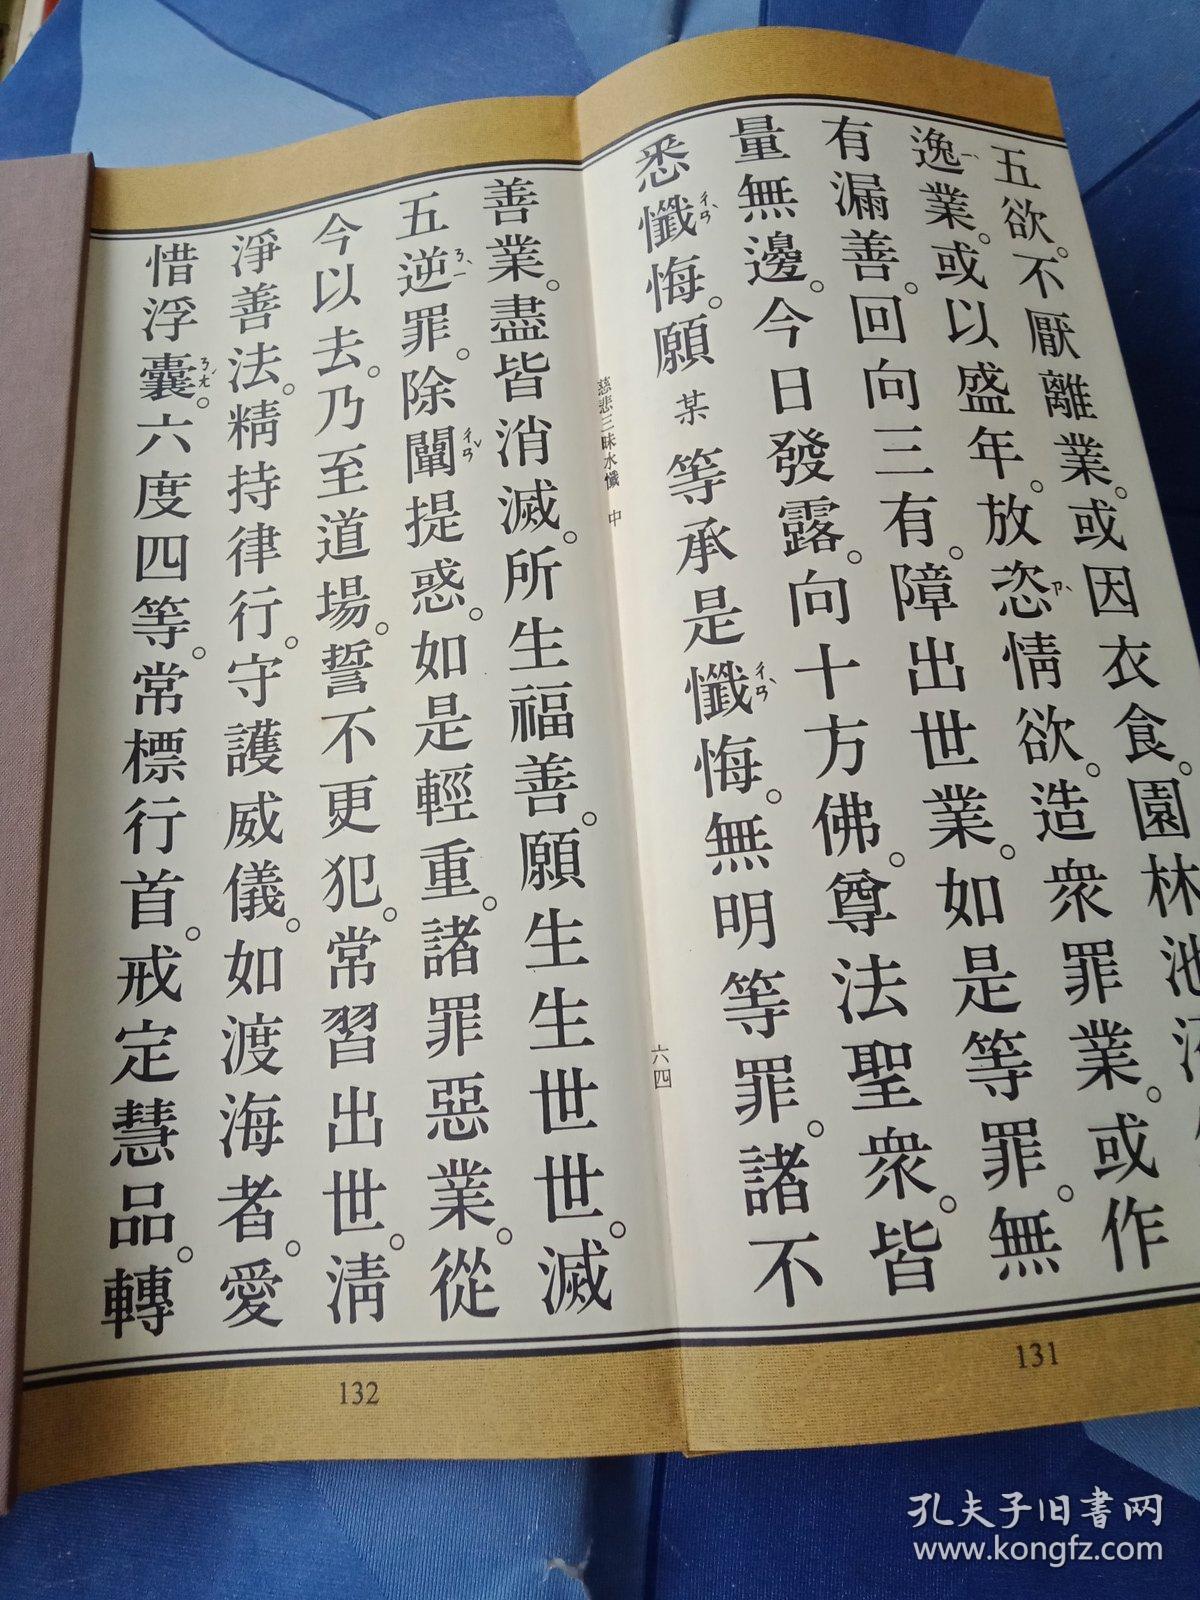 五欲。不厭離業。或因衣食。園林池
逸業。或以盛年。放恣情欲。造眾罪業。或作
有漏善。回向三有。障出世業。如是等罪。無
量無邊。今日發露。向十方佛。尊法聖眾。皆
悉懺悔。願某等承是懺悔。無明等罪。諸不
慈悲三昧水懺 中 六四
善業。盡皆消滅。所生福善。願生生世世。滅
五逆罪。除闡提惑。如是輕重。諸罪惡業。從
今以去。乃至道場。誓不更犯。常習出世。清
淨善法。精持律行。守護威儀。如渡海者。愛
惜浮囊。六度四等。常標行首。戒定慧品。轉
131
132
孔夫子旧书网
www.kongfz.com